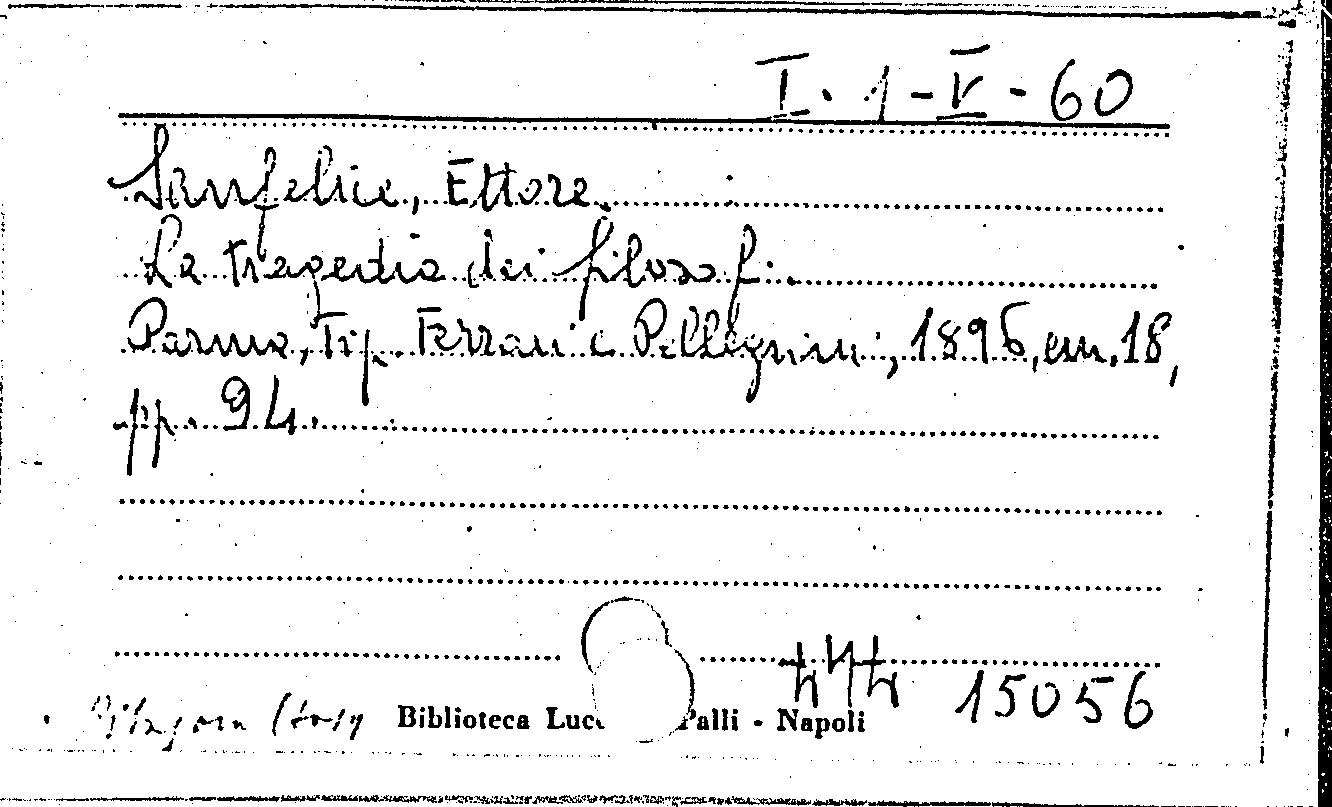 I. 1-V-60
Sanfelice, Ettore.
La tragedia dei filosofi.
Parma, Tip. Ferrari e Pellegrini, 1896, in 18,
pp. 94.
15056
Biblioteca Palli - Napoli